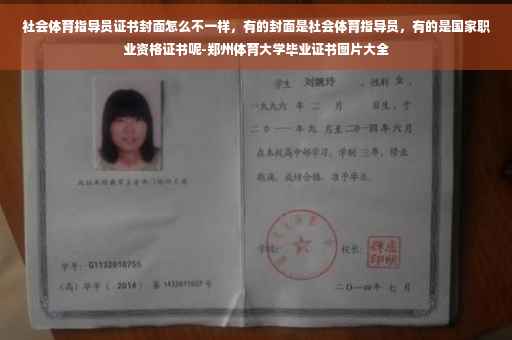 社会体育指导员证书封面怎么不一样，有的封面是社会体育指导员，有的是国家职
业资格证书呢-郑州体育大学毕业证书图片大全
学生 刘婉玲 ，性别 女 ，
一九九六 年 二 月 日生，于
二〇一一年九 月至二〇一四年 六 月
在本校高中部学习，学制 三 年，修业
期满，成绩合格，准予毕业。
学号： G1132010755
学校：
校长：
（高）毕字（ 2014 ）第 1432011007 号
二〇一四年 七 月